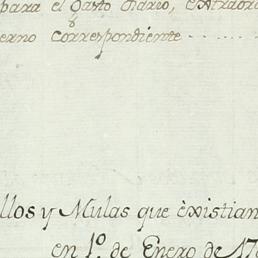 para el Gasto diario, extraor
erno correspondiente
llos y Mulas que èxistian
en 1º. de Enero de 17